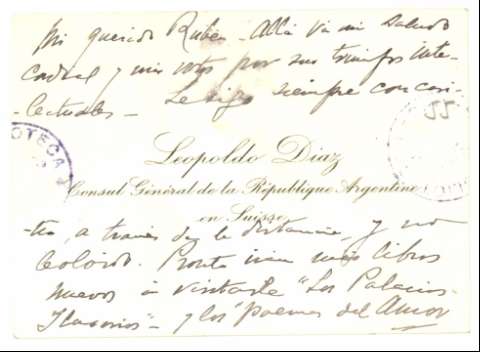 Mi querido Rubén - Allá va mi saludo
cordial y mis votos por sus triunfos inte-
-lectuales - Le sigo siempre con cari-
OTECA
Leopoldo Diaz
Consul Général de la République Argentine
en Suisse
-ño, a través de la distancia, y no
le olvido. Pronto irán mis libros
nuevos á visitarle "Los Palacios
Ilusorios" - y los "Poemas del Amor